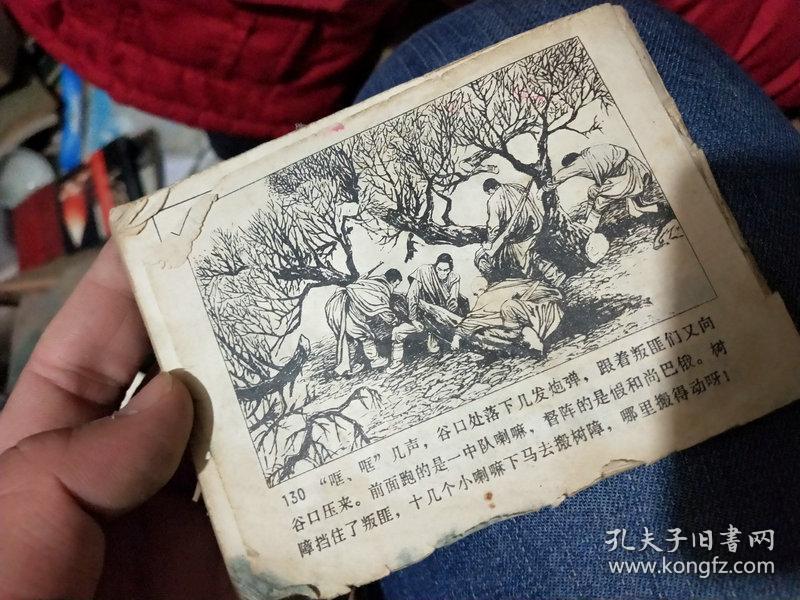 130 “哐、哐”几声，谷口处落下几发炮弹，跟着叛匪们又向
谷口压来。前面跑的是一中队喇嘛，督阵的是假和尚巴锇。树
障挡住了叛匪，十几个小喇嘛下马去搬树障，哪里搬得动呀！
孔夫子旧书网
www.kongfz.com